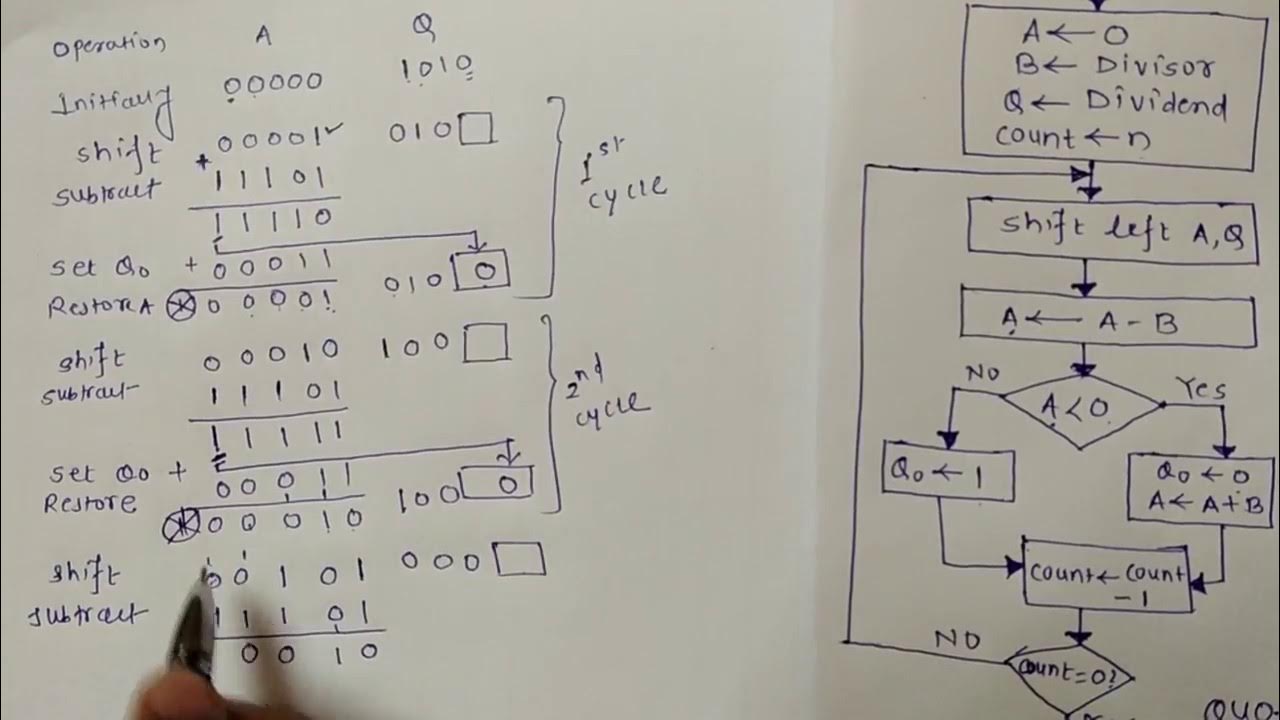 Operation A Q
Initially 00000 1010
Shift 00001 010
Subtract + 11101
11110
Set Q0 + 00011 010 0
Restore A 00001
1st cycle
Shift 00010 100
Subtract 11101
11111
Set Q0 + 00011 100 0
Restore 00010
2nd cycle
Shift 00101 000
Subtract 11101
0010
A ← 0
B ← Divisor
Q ← Dividend
Count ← n
Shift left A,Q
A ← A - B
A < 0
NO
Yes
Q0 ← 1
Q0 ← 0
A ← A + B
Count ← Count
-1
NO
Count = 0?
QUO